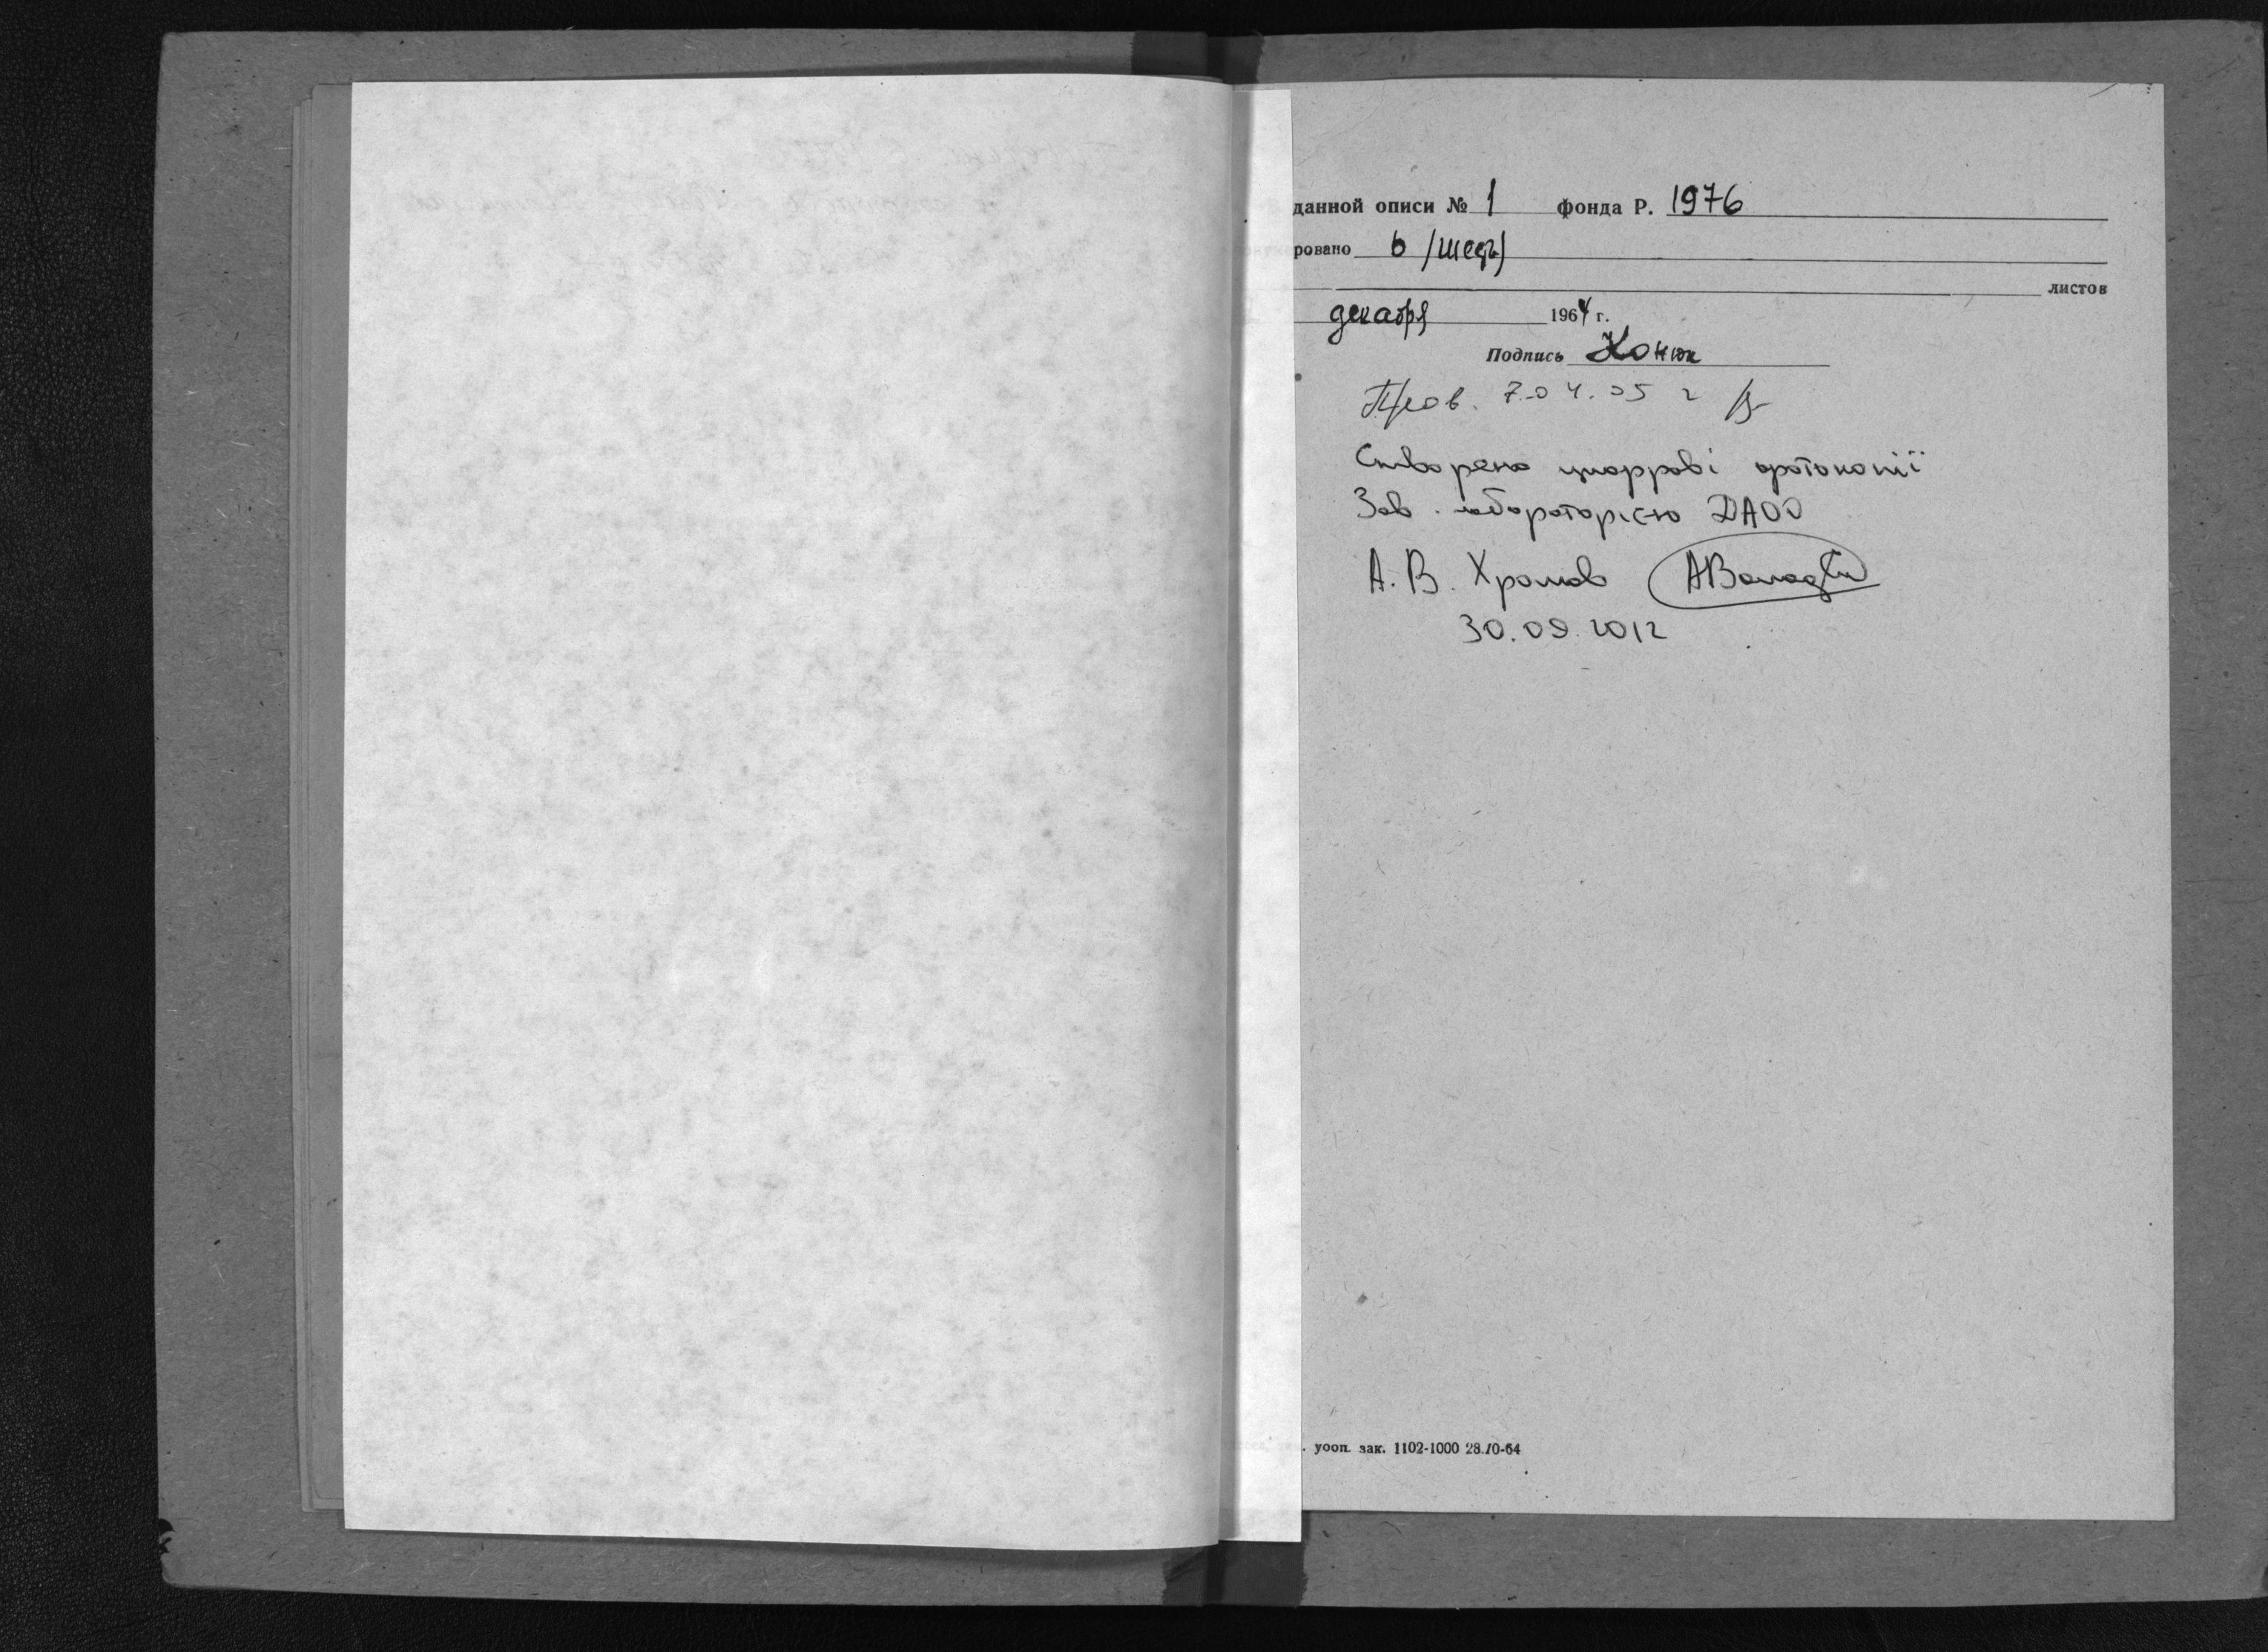 данной описи № 1 фонда Р. 1976
ровано 6 /шесть)
листов
декабря 1964 г.
Подпись
Пров. 7.04.05 г
Створено цифрові фотокопії
Зав. лабораторією ДАОО
А. В. Хромов
30.09.2012
. уооп. зак. 1102-1000 28.10-64